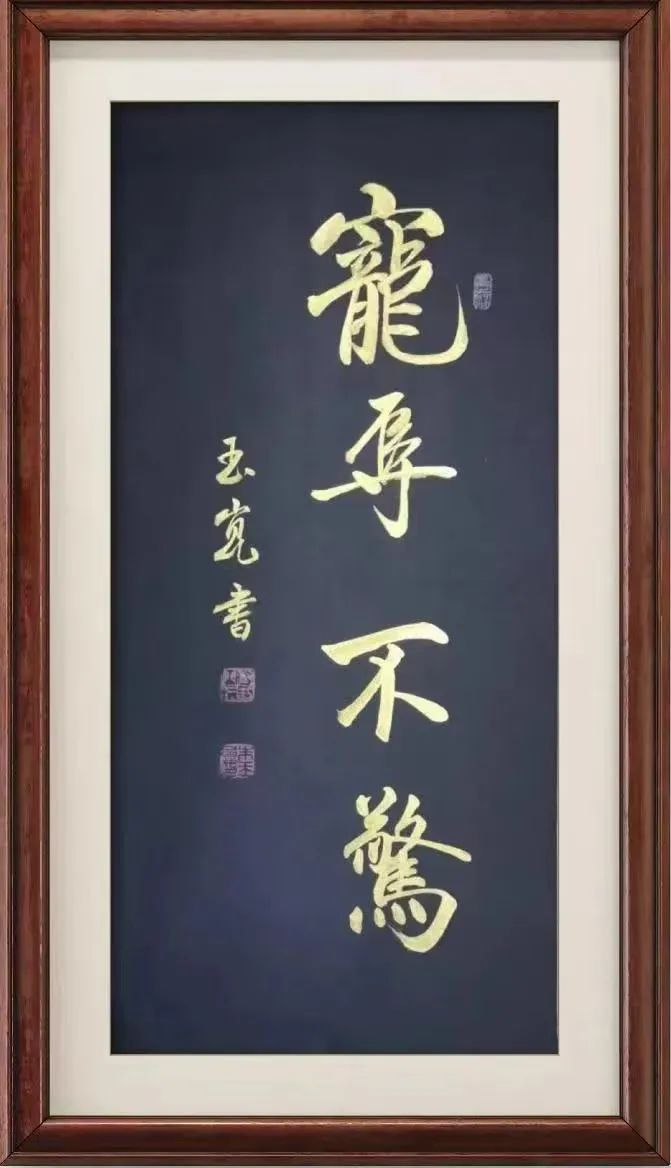 寵辱不驚
玉寬書